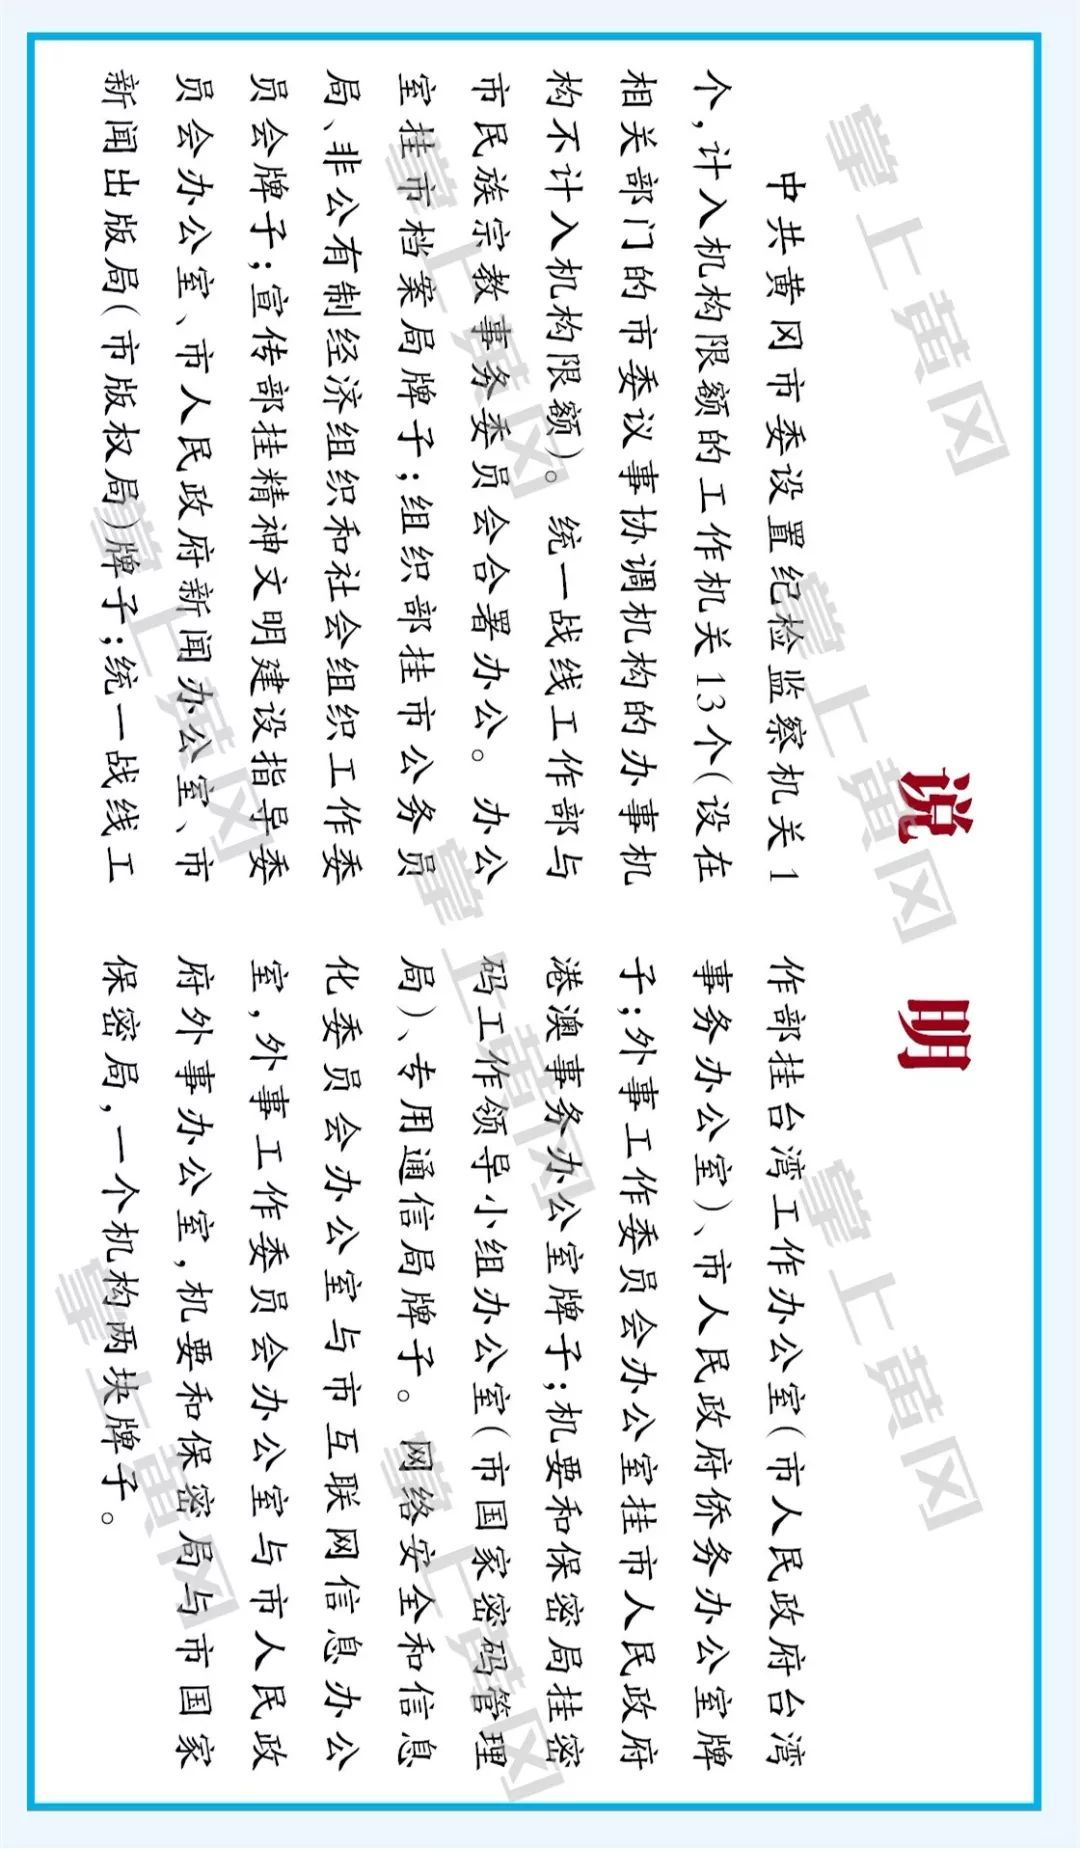 说明
中共黄冈市委设置纪检监察机关1
个，计入机构限额的工作机关13个（设在
相关部门的市委议事协调机构的办事机
构不计入机构限额）。统一战线工作部与
市民族宗教事务委员会合署办公。办公
室挂市档案局牌子；组织部挂市公务员
局、非公有制经济组织和社会组织工作委
员会牌子；宣传部挂精神文明建设指导委
员会办公室、市人民政府新闻办公室、市
新闻出版局（市版权局）牌子；统一战线工
作部挂台湾工作办公室（市人民政府台湾
事务办公室）、市人民政府侨务办公室牌
子；外事工作委员会办公室挂市人民政府
港澳事务办公室牌子；机要和保密局挂密
码工作领导小组办公室（市国家密码管理
局）、专用通信局牌子。网络安全和信息
化委员会办公室与市互联网信息办公
室，外事工作委员会办公室与市人民政
府外事办公室，机要和保密局与市国家
保密局，一个机构两块牌子。
掌上黄冈
掌上黄冈
掌上黄冈
掌上黄冈
掌上黄冈
掌上黄冈
掌上黄冈
掌上黄冈